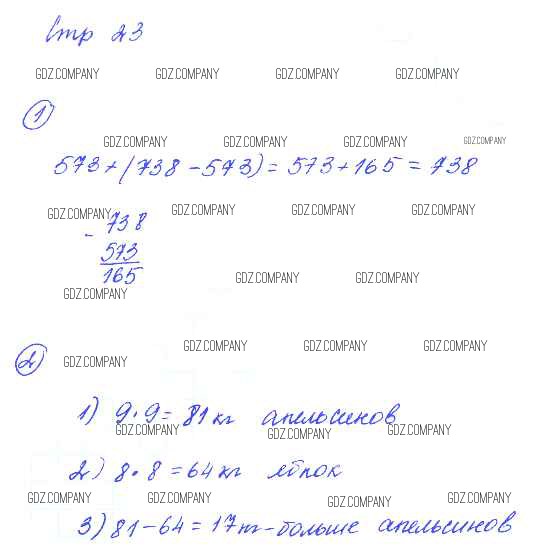 Стр 23
GDZ.COMPANY GDZ.COMPANY GDZ.COMPANY GDZ.COMPANY
1
GDZ.COMPANY GDZ.COMPANY GDZ.COMPANY GDZ.COMPANY
573+(738-573)=573+165=738
GDZ.COMPANY GDZ.COMPANY GDZ.COMPANY GDZ.COMPANY
- 738
573
165
GDZ.COMPANY GDZ.COMPANY
GDZ.COMPANY
GDZ.COMPANY GDZ.COMPANY GDZ.COMPANY
2
GDZ.COMPANY
1) 9·9=81кг апельсинов
GDZ.COMPANY GDZ.COMPANY GDZ.COMPANY
2) 8·8=64кг яблок
GDZ.COMPANY GDZ.COMPANY GDZ.COMPANY GDZ.COMPANY
3) 81-64=17кг-больше апельсинов